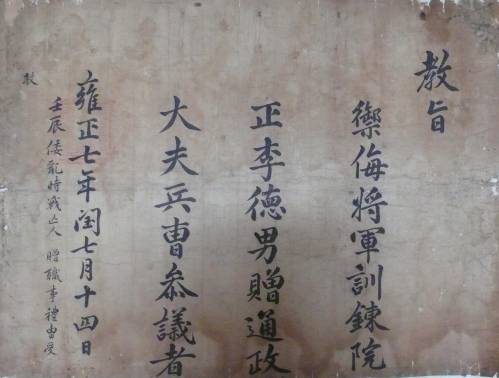 教旨
禦侮將軍訓鍊院
正李德男贈通政
大夫兵曹參議者
雍正七年閏七月十四日
壬辰倭亂時戰亡人 贈職事禮曹受
敎